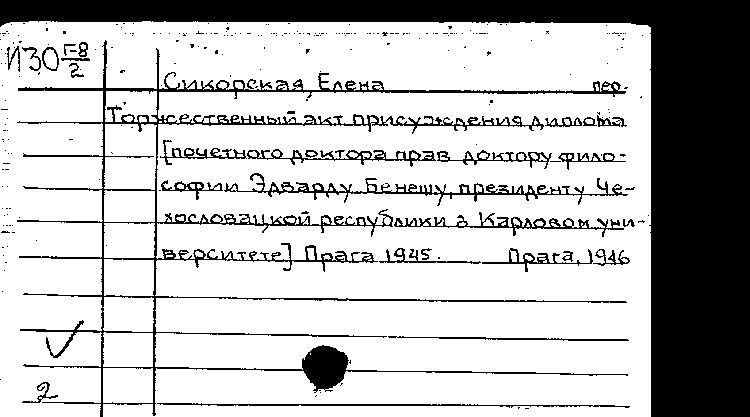 ИЗО Г-8/2
Сикорская, Елена пер.
Торжественный акт присуждения диплома
[почетного доктора прав доктору фило-
софии Эдварду Бенешу, президенту Че-
хословацкой республики в Карловом уни-
верситете] Прага 1945. Прага, 1946
2